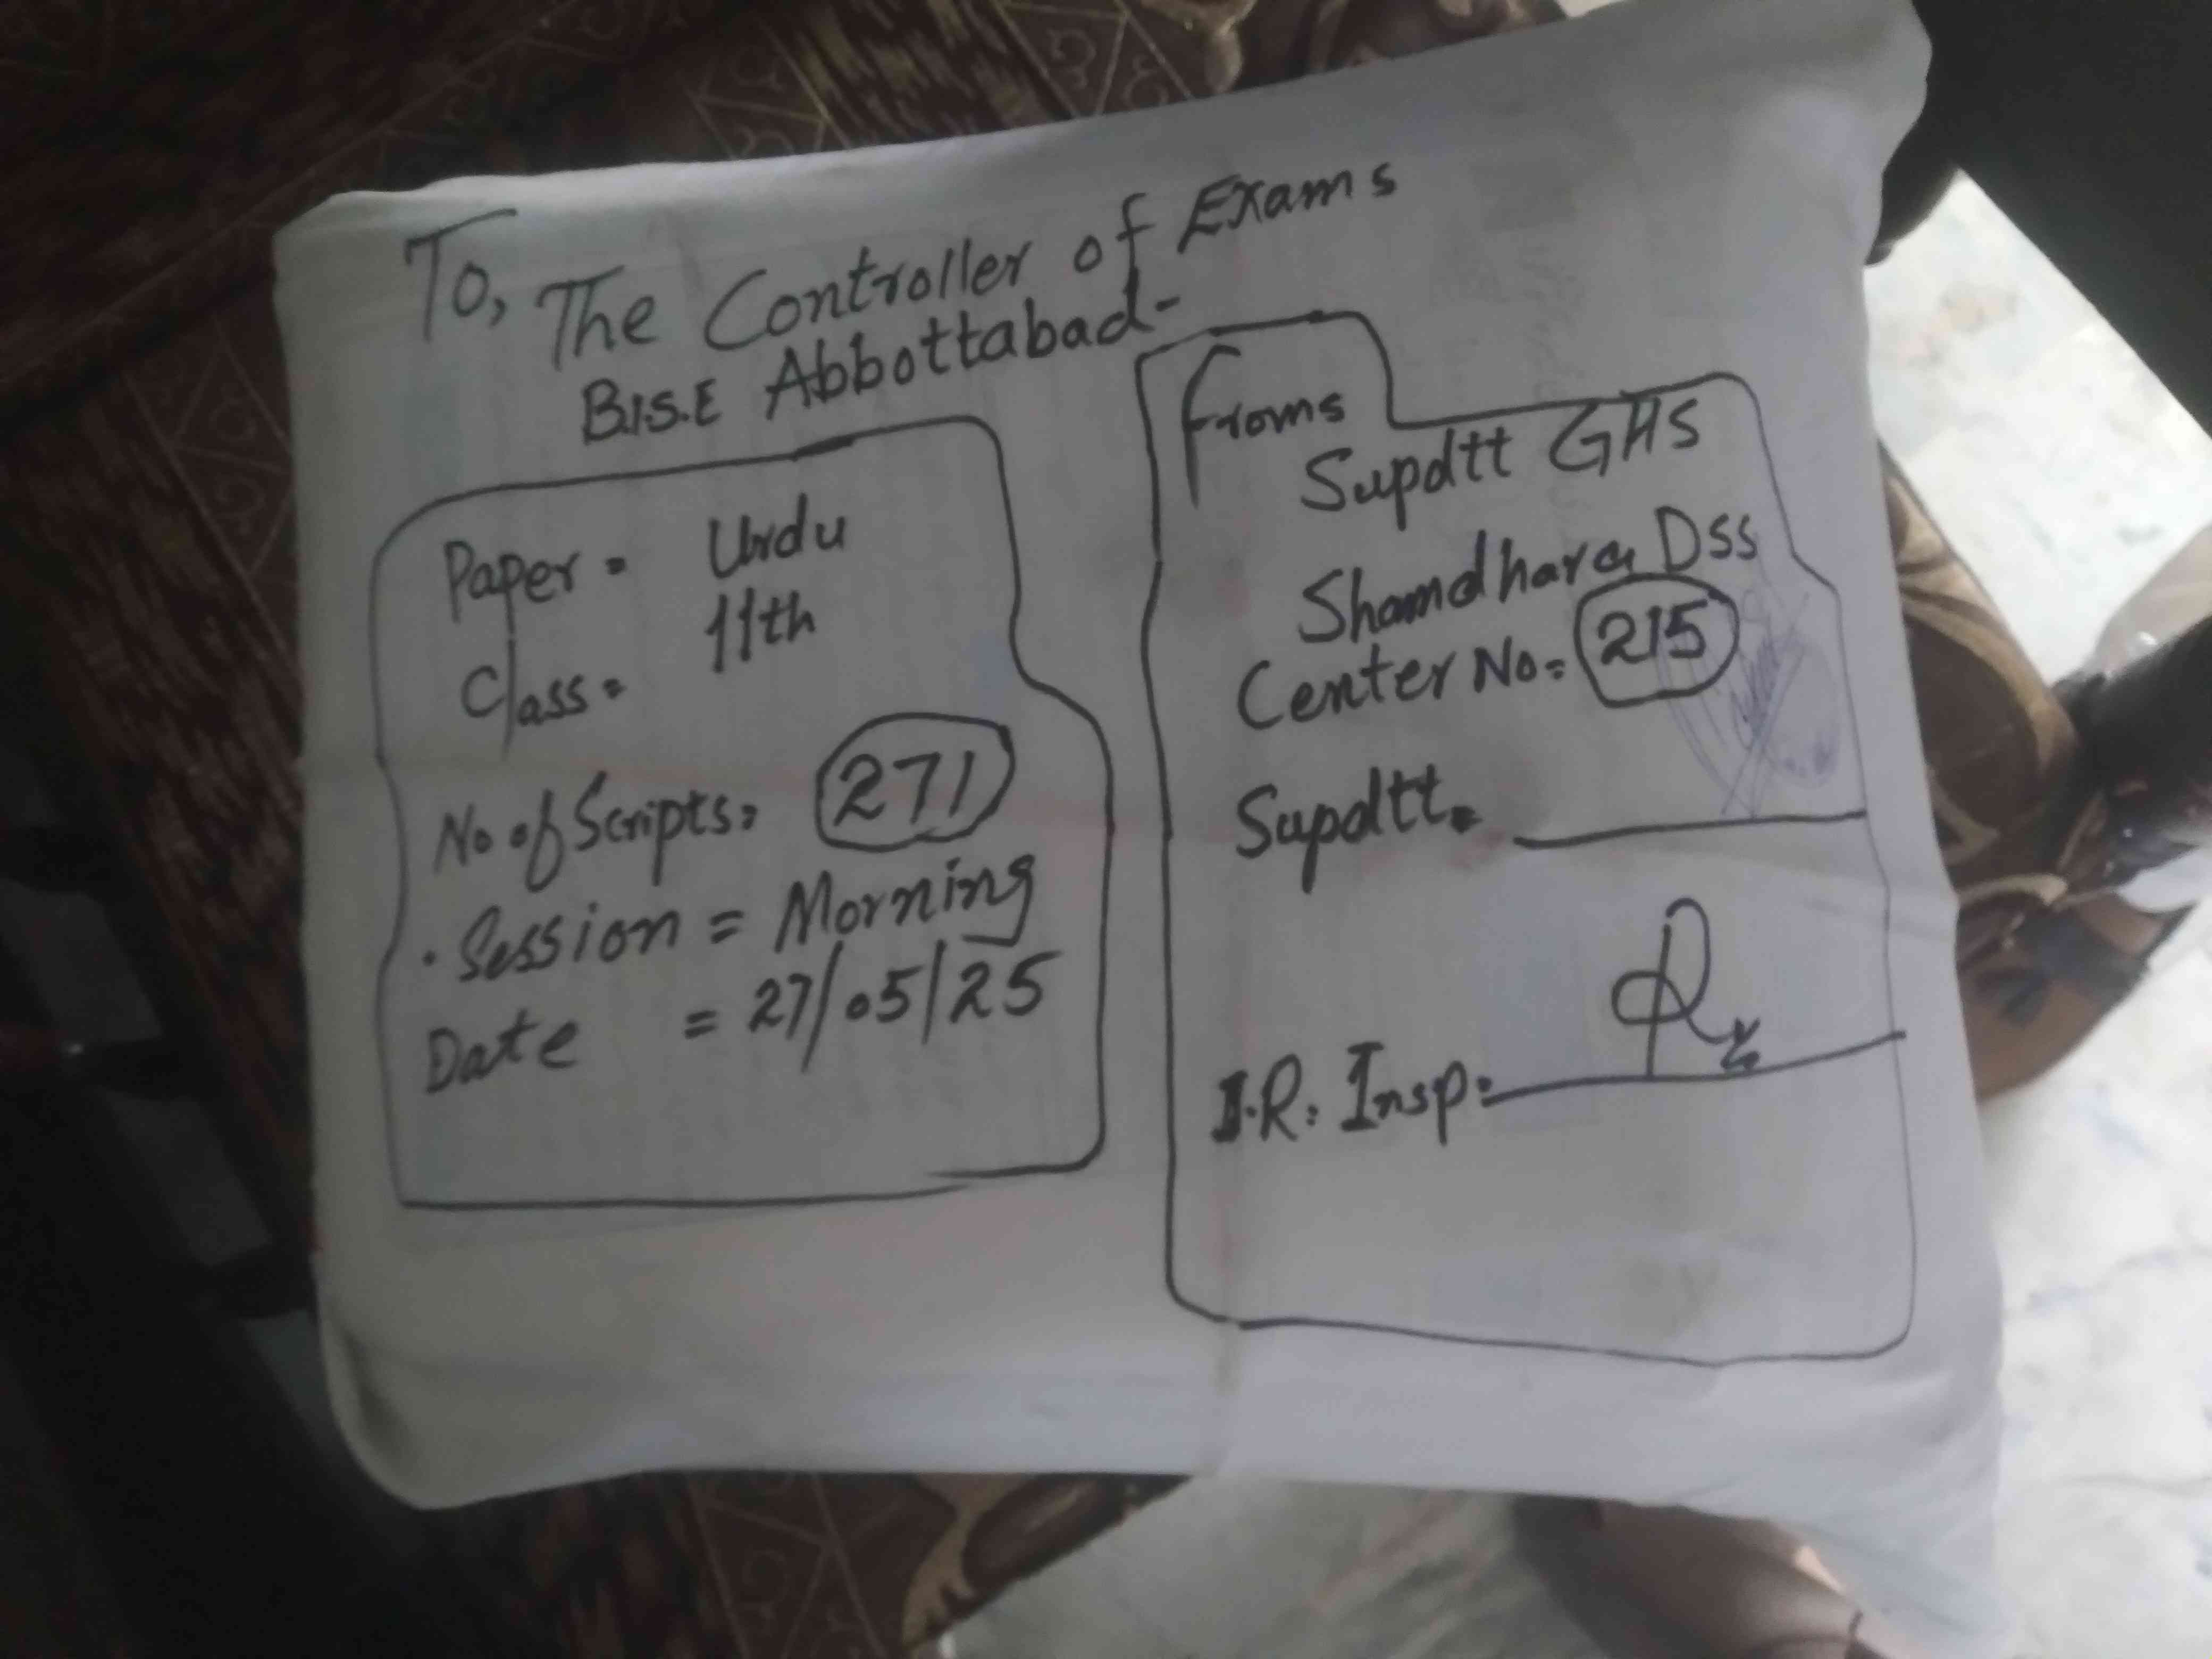 To, The Controller of Exams
B.I.S.E Abbottabad-
Paper = Urdu
Class = 11th
No of Scripts = 271
Session = Morning
Date = 27/05/25
Froms
Supdtt GHS
Shamdhara Dss
Center No = 215
Supdtt =
I.R. Insp: